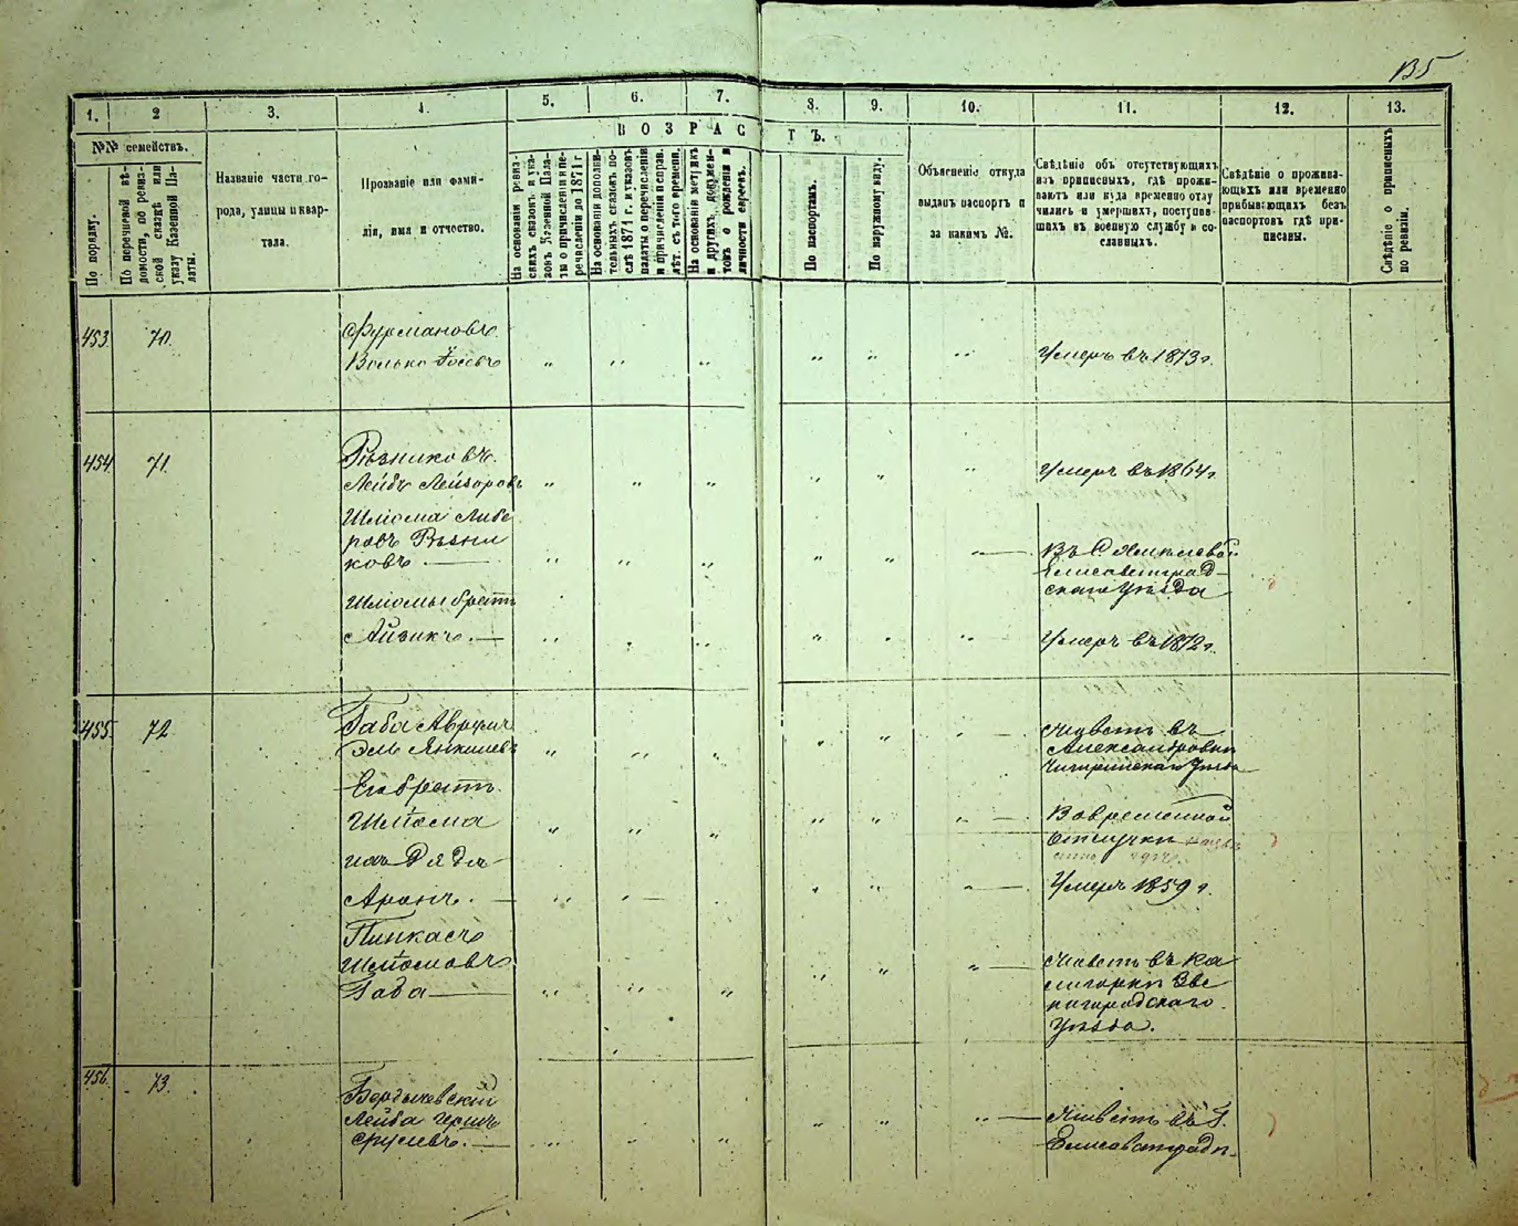 135
1. 2 3. 4. 5. 6. 7. 8. 9. 10. 11. 12. 13.
№№ семействъ.
ВОЗРАСТЪ.
По порядку.
По перечневой вѣ-
домости, по ревиз-
ской сказкѣ или
указу Казенной Па-
латы.
Названіе части го-
рода, улицы и квар-
тала.
Прозваніе или фами-
лія, имя и отчество.
На основаніи ревиз-
скихъ сказокъ и ука-
зовъ Казенной Пала-
ты о причисленіи и пе-
речисленіи до 1871 г
На основаніи дополни-
тельныхъ сказокъ по-
слѣ 1871 г. и указовъ
палаты о перечисленіи
и причисленіи и исправ.
лѣт. съ того времени.
На основаніи метрикъ
и другихъ докумен-
товъ о рожденіи и
личности евреевъ.
По паспортамъ.
По наружному виду.
Объясненіе откуда
выданъ паспортъ и
за какимъ №.
Свѣдѣніе объ отсутствующихъ
изъ приписныхъ, гдѣ прожи-
ваютъ или куда временно отлу
чились и умершихъ, поступив-
шихъ въ военную службу и со-
сланныхъ.
Свѣдѣніе о прожива-
ющихъ или временно
прибывающихъ безъ
паспортовъ гдѣ при-
писаны.
Свѣдѣніе о приписныхъ
по ревизіи.
453. 70. Фурмановъ
Волько Іосевъ " " " " " " Умеръ въ 1873 г.
454 71. Рѣзниковъ.
Лейбъ Лейзоровъ " " " " " " Умеръ въ 1864 г.
Шліома Либе
ровъ Рѣзни
ковъ. — " " " " " " —
Елисаветград-
скаго Уѣзда
Шліомы братъ
Айзикъ. — " " " " " " Умеръ въ 1872 г.
455. 72 Баба
Янкелевъ " " " " " " — Живетъ въ
Александровки
Чигиринскаго Уѣзда
Его братъ
Шліома " " " " " " — Вовременной
Отлучки
ихъ Дядя
Аронъ. — " " — " " " — Умеръ 1859 г.
Пинкасъ
Шліомовъ
Баба — " " " " " " — Живетъ въ Ка
лигорки Зве
нигородскаго
Уѣзда.
456. 73. Бердычевскій
Лейба Гершъ
Срулевъ. — " " " " " " — Живетъ въ Г.
Елисаветградѣ.